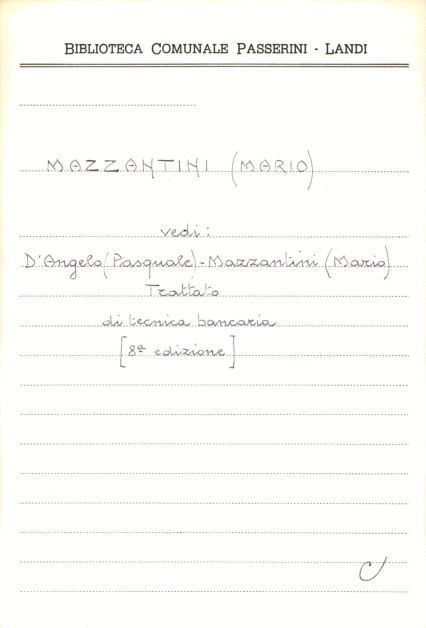 BIBLIOTECA COMUNALE PASSERINI - LANDI
MAZZANTINI (MARIO)
vedi:
D'Angelo (Pasquale) - Mazzantini (Mario)
Trattato
di tecnica bancaria
[8ª edizione]